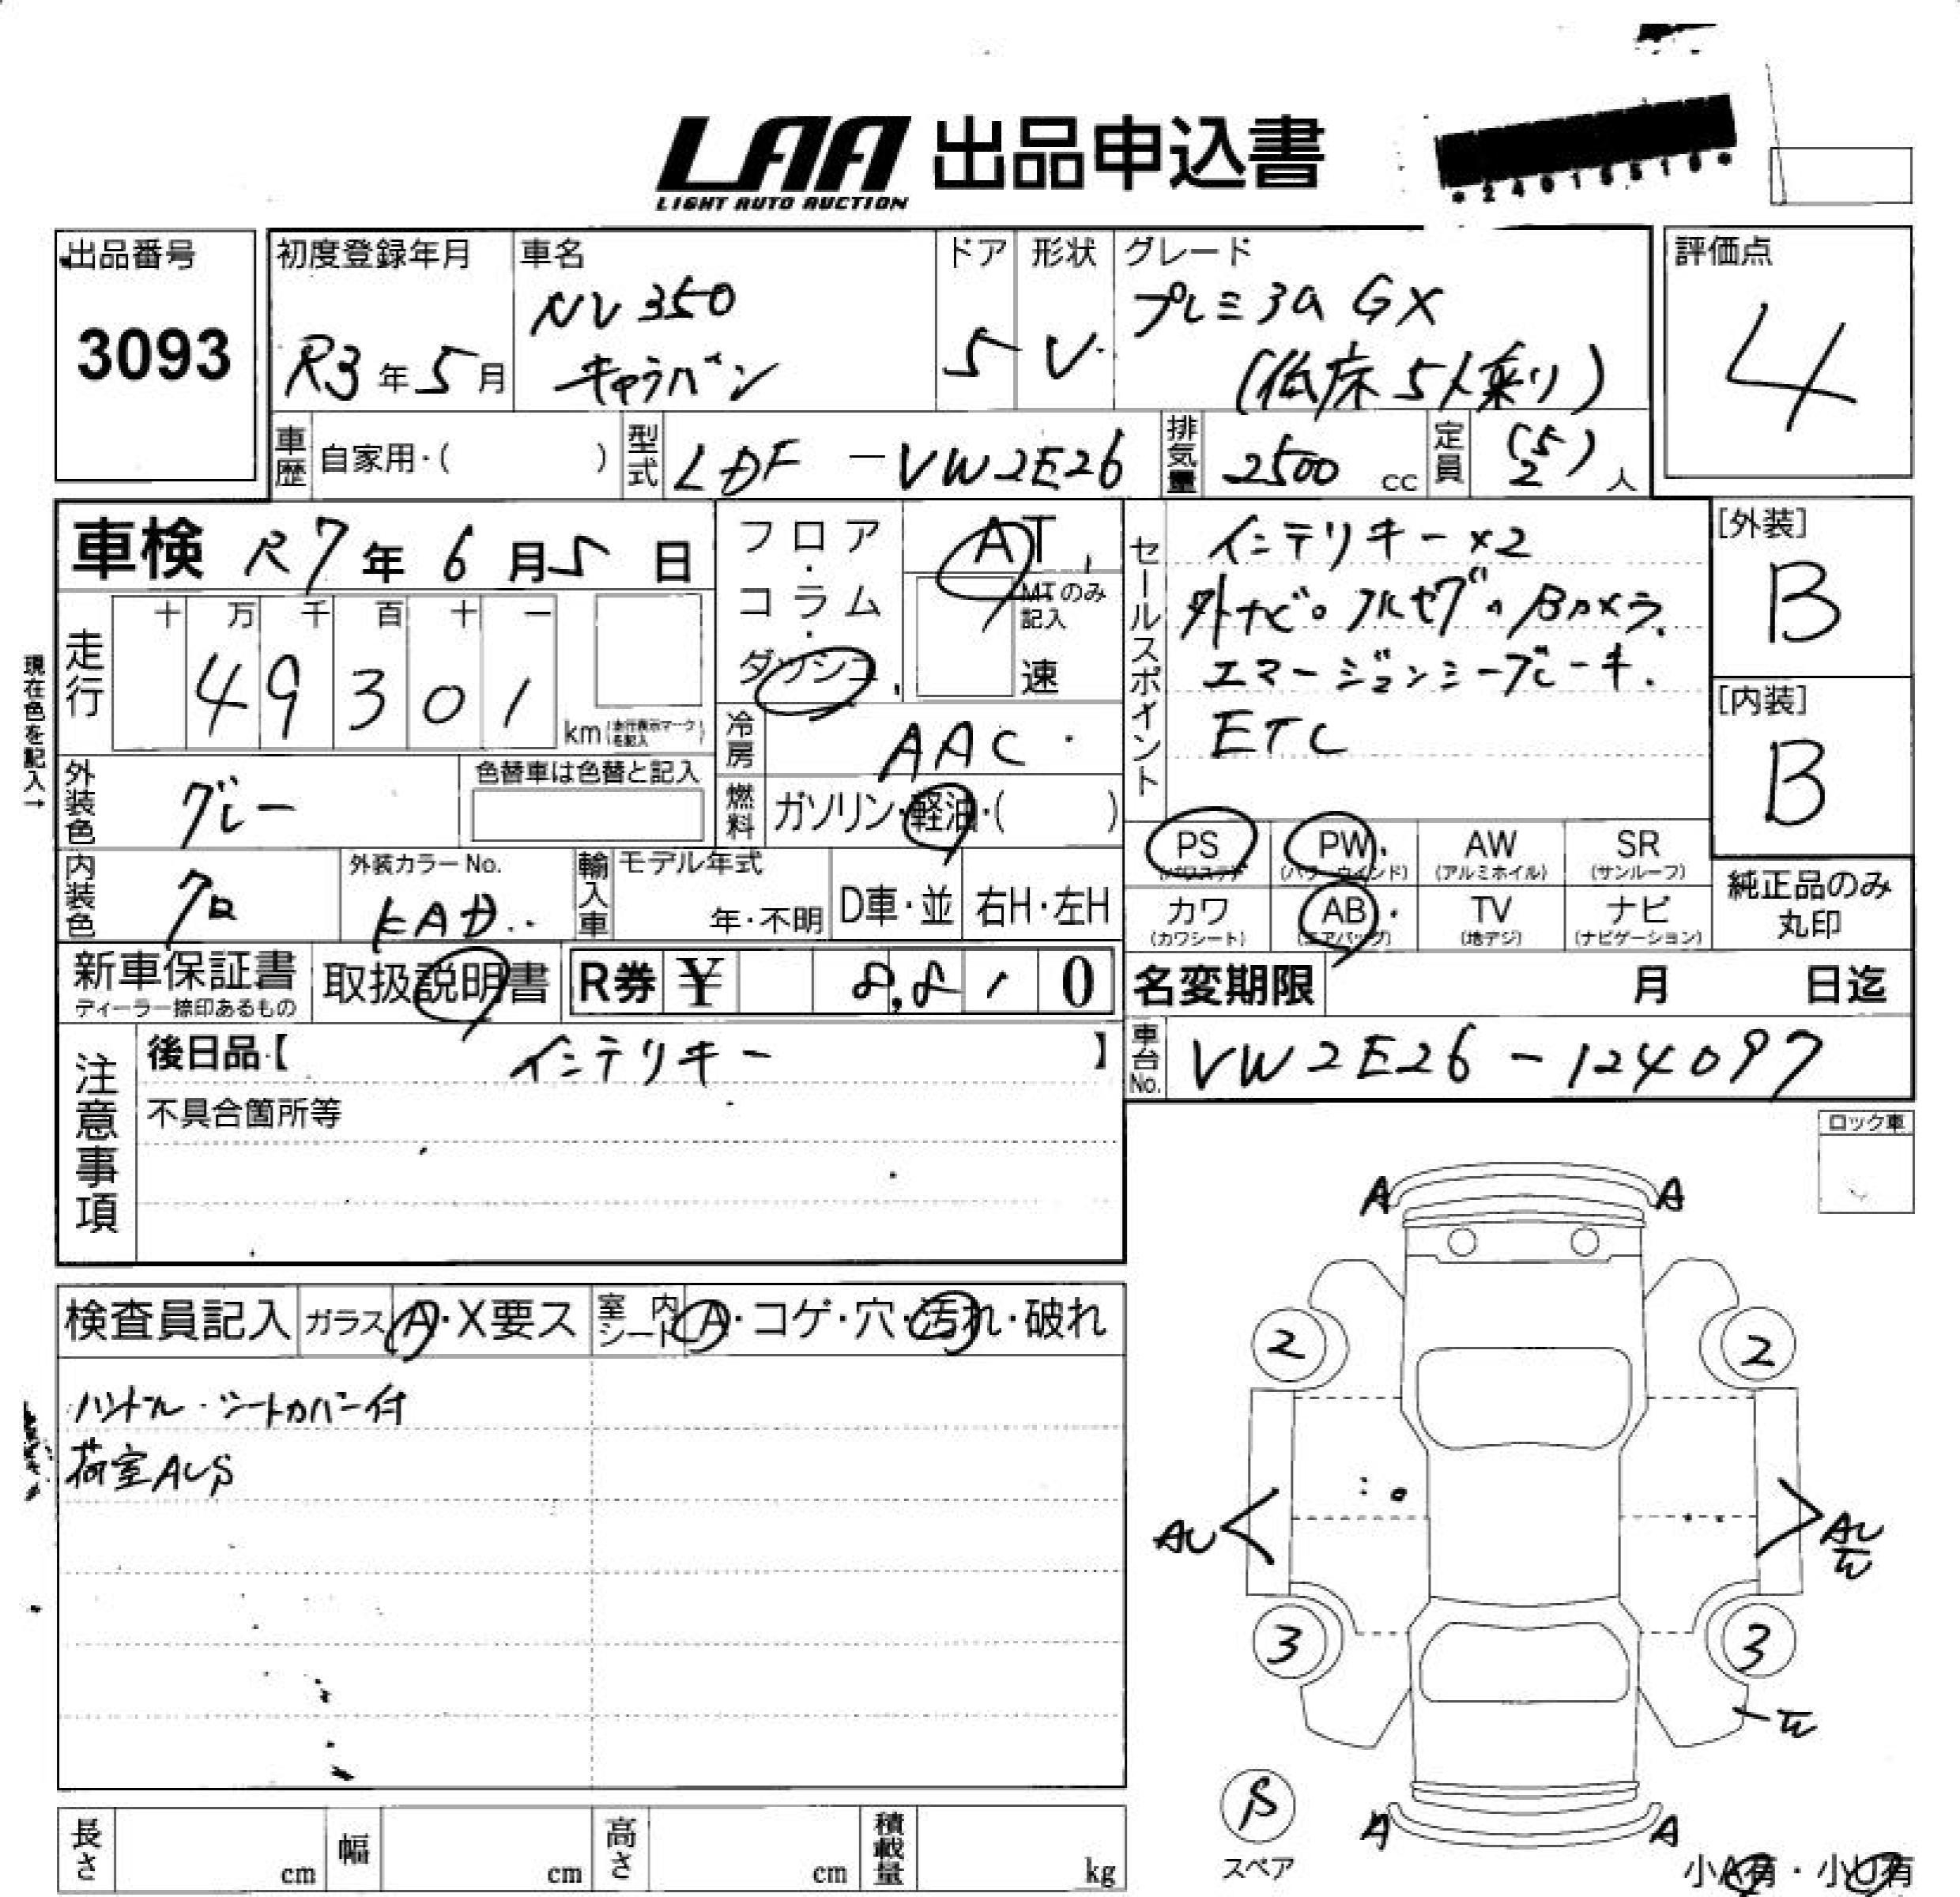 LAA 出品申込書
LIGHT AUTO AUCTION
出品番号
3093
初度登録年月
R3年5月
車名
NV350
キャラバン
ドア
5
形状
V
グレード
プレミアムGX
(低床5人乗り)
評価点
4
車歴
自家用・( )
型式
LDF-VW2E26
排気量
2500 cc
定員
(5)
2 人
車検 R7年6月5日
フロア・コラム・ダッシュ
AT
MTのみ記入
速
走行
十 万 千 百 十 一
4 9 3 0 1
km(走行表示マークを記入)
現在色を記入→
冷房
AAC
燃料
ガソリン・軽油・( )
外装色
グレー
色替車は色替と記入
内装色
クロ
外装カラーNo.
KAD
輸入車
モデル年式
年・不明
D車・並
右H・左H
セールスポイント
インテリキー×2
外ナビ。フルセグ、Bカメラ.
エマージェンシーブレーキ.
ETC
[外装]
B
[内装]
B
PS
(パワステ)
PW
(パワーウインド)
AW
(アルミホイル)
SR
(サンルーフ)
カワ
(カワシート)
AB
(エアバッグ)
TV
(地デジ)
ナビ
(ナビゲーション)
純正品のみ
丸印
新車保証書
ディーラー捺印あるもの
取扱説明書
R券 ¥ 8,810
名変期限 月 日迄
車台No.
VW2E26-124097
注意事項
後日品【 インテリキー 】
不具合箇所等
ロック車
検査員記入
ガラス A・X要ス
室内シート A・コゲ・穴・汚れ・破れ
ハンドル・シートカバー付
荷室AUS
A A
2 2
AU AU
W
3 3
W
S
スペア
A A
小A有・小U有
長さ cm
幅 cm
高さ cm
積載量 kg